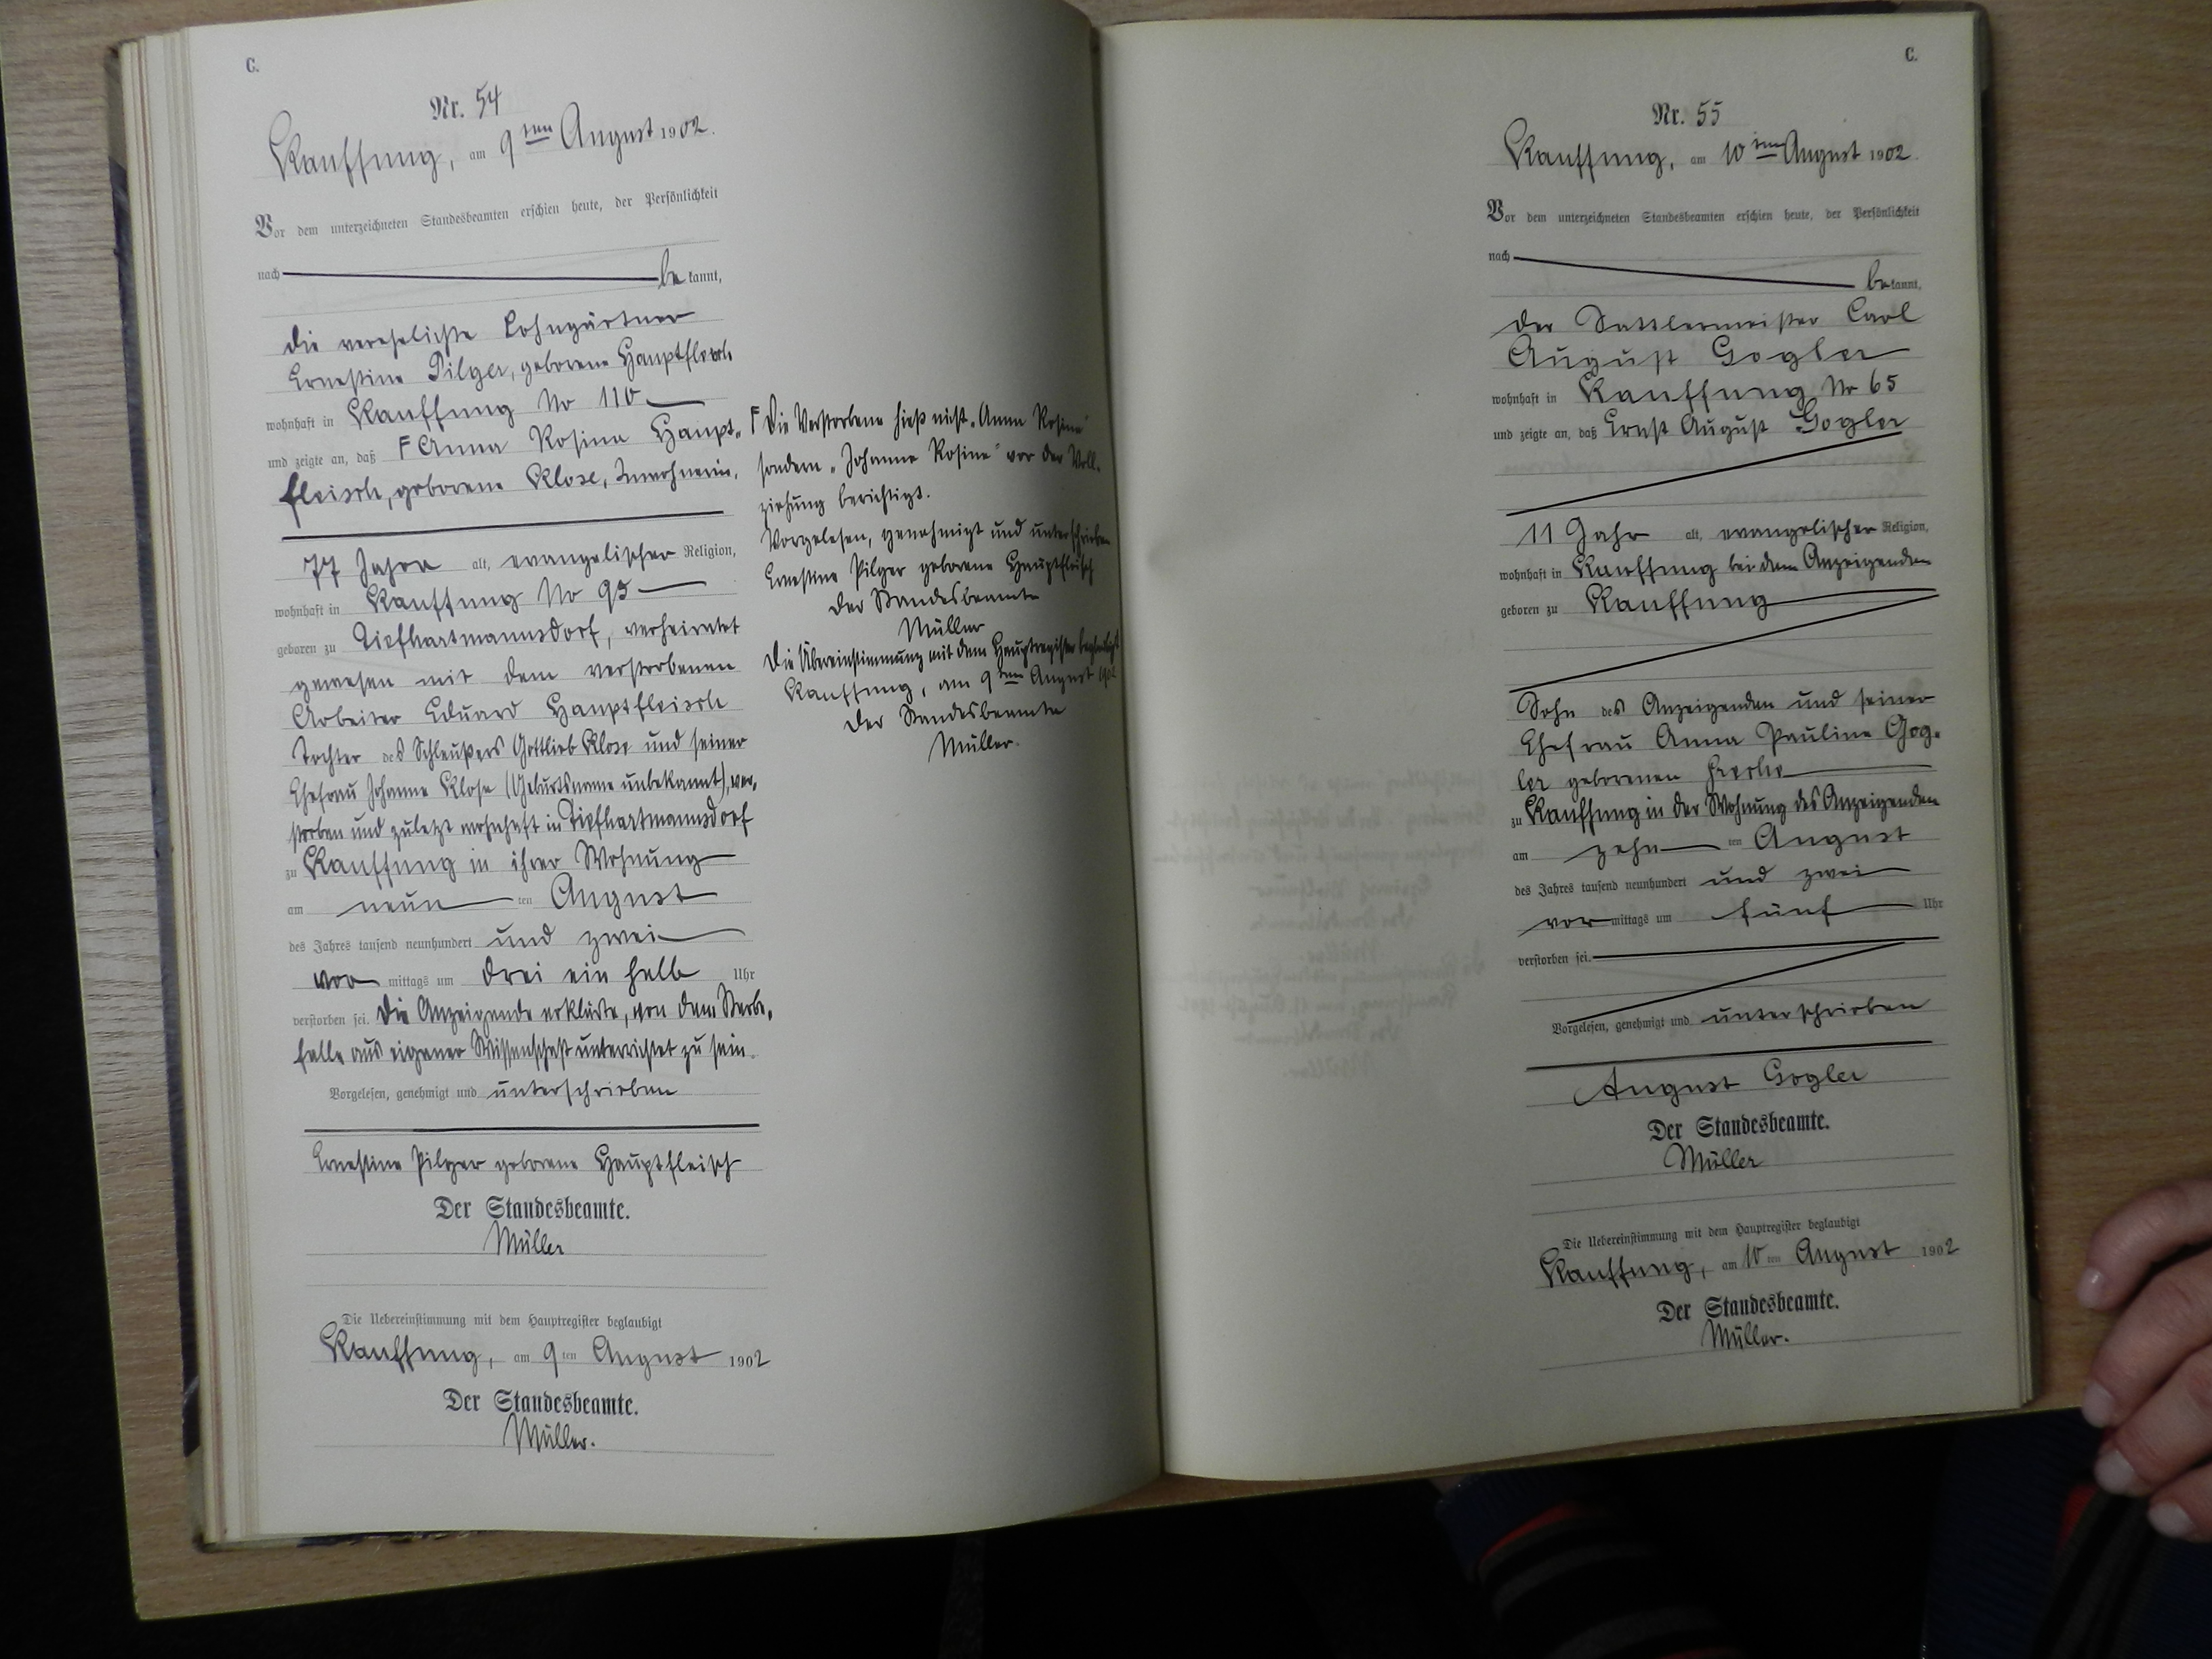 C.
Nr. 54
Kauffung, am 9ten August 1902.
Vor dem unterzeichneten Standesbeamten erschien heute, der Persönlichkeit
nach be kannt,
die verehelichte Lohngärtner
Ernestine Pilger, geborene Hauptfleisch
wohnhaft in Kauffung No 110
und zeigte an, daß F Anna Rosina Haupt-
fleisch, geborene Klose, Inwohnerin,
77 Jahre alt, evangelischer Religion,
wohnhaft in Kauffung No 95
geboren zu Tiefhartmannsdorf, verheiratet
gewesen mit dem verstorbenen
Arbeiter Eduard Hauptfleisch
Tochter des Schleußers Gottlieb Klose und seiner
Ehefrau Johanne Klose (Geburtsname unbekannt), ver-
storben und zuletzt wohnhaft in Tiefhartmannsdorf
zu Kauffung in ihrer Wohnung
am neun ten August
des Jahres tausend neunhundert und zwei
vor mittags um drei ein halb Uhr
verstorben sei. Die Anzeigende erklärte, von dem Sterbe-
falle aus eigener Wissenschaft unterrichtet zu sein.
Vorgelesen, genehmigt und unterschrieben
Ernestine Pilger geborene Hauptfleisch
Der Standesbeamte.
Müller
Die Uebereinstimmung mit dem Hauptregister beglaubigt
Kauffung, am 9ten August 1902
Der Standesbeamte.
Müller.
F Die Verstorbene hieß nicht „Anna Rosina"
sondern „Johanne Rosine" vor der Voll-
ziehung berichtigt.
Vorgelesen, genehmigt und unterschrieben
Ernestine Pilger geborene Hauptfleisch
Der Standesbeamte
Müller
Die Übereinstimmung mit dem Hauptregister beglaubigt
Kauffung, am 9ten August 1902
Der Standesbeamte
Müller.
C.
Nr. 55
Kauffung, am 10ten August 1902.
Vor dem unterzeichneten Standesbeamten erschien heute, der Persönlichkeit
nach be kannt,
der Sattlermeister Carl
August Gogler
wohnhaft in Kauffung No 65
und zeigte an, daß Ernst August Gogler
11 Jahr alt, evangelischer Religion,
wohnhaft in Kauffung bei dem Anzeigenden
geboren zu Kauffung
Sohn des Anzeigenden und seiner
Ehefrau Anna Pauline Gog-
ler geborenen
zu Kauffung in der Wohnung des Anzeigenden
am zehn ten August
des Jahres tausend neunhundert und zwei
vor mittags um fünf Uhr
verstorben sei.
Vorgelesen, genehmigt und unterschrieben
August Gogler
Der Standesbeamte.
Müller
Die Uebereinstimmung mit dem Hauptregister beglaubigt
Kauffung, am 10ten August 1902
Der Standesbeamte.
Müller.